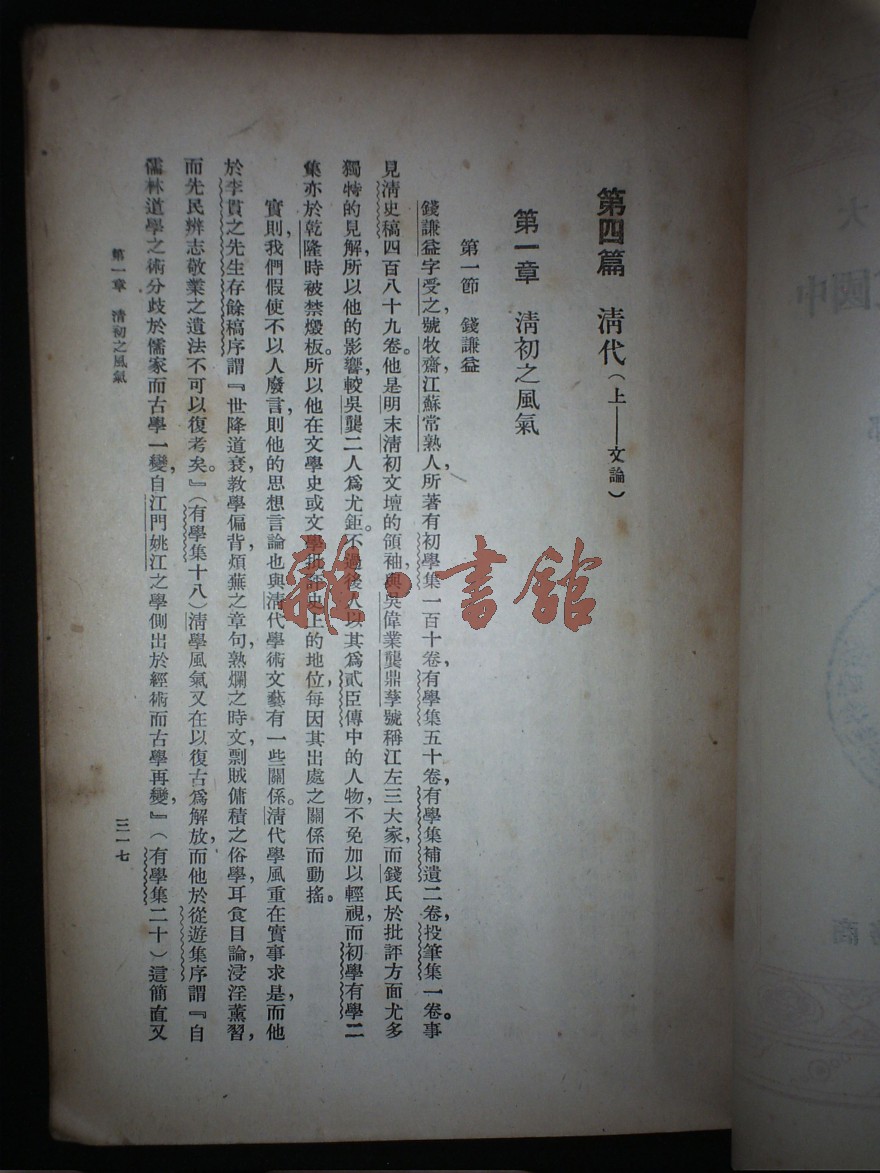 第四篇 淸代(上——文論)
第一章 淸初之風氣
第一節 錢謙益
錢謙益字受之,號牧齋,江蘇常熟人,所著有初學集一百十卷,有學集五十卷,有學集補遺二卷,投筆集一卷。事
見淸史稿四百八十九卷。他是明末淸初文壇的領袖,與吳偉業龔鼎孳號稱江左三大家,而錢氏於批評方面尤多
獨特的見解,所以他的影響,較吳龔二人爲尤鉅。不過後人以其爲貳臣傳中的人物,不免加以輕視,而初學有學二
集亦於乾隆時被禁燬板。所以他在文學史或文學批評史上的地位,每因其出處之關係而動搖。
實則,我們假使不以人廢言,則他的思想言論也與淸代學術文藝有一些關係。淸代學風重在實事求是,而他
於李貫之先生存餘稿序謂『世降道衰,敎學偏背,煩蕪之章句,熟爛之時文,剽賊傭積之俗學,耳食目論,浸淫薰習,
而先民辨志敬業之遺法不可以復考矣。』(有學集十八)淸學風氣又在以復古爲解放,而他於從遊集序謂『自
儒林道學之術分歧於儒家而古學一變,自江門姚江之學側出於經術而古學再變,』(有學集二十)這簡直又
第一章 淸初之風氣
三一七
雜·書館
大
國中
商